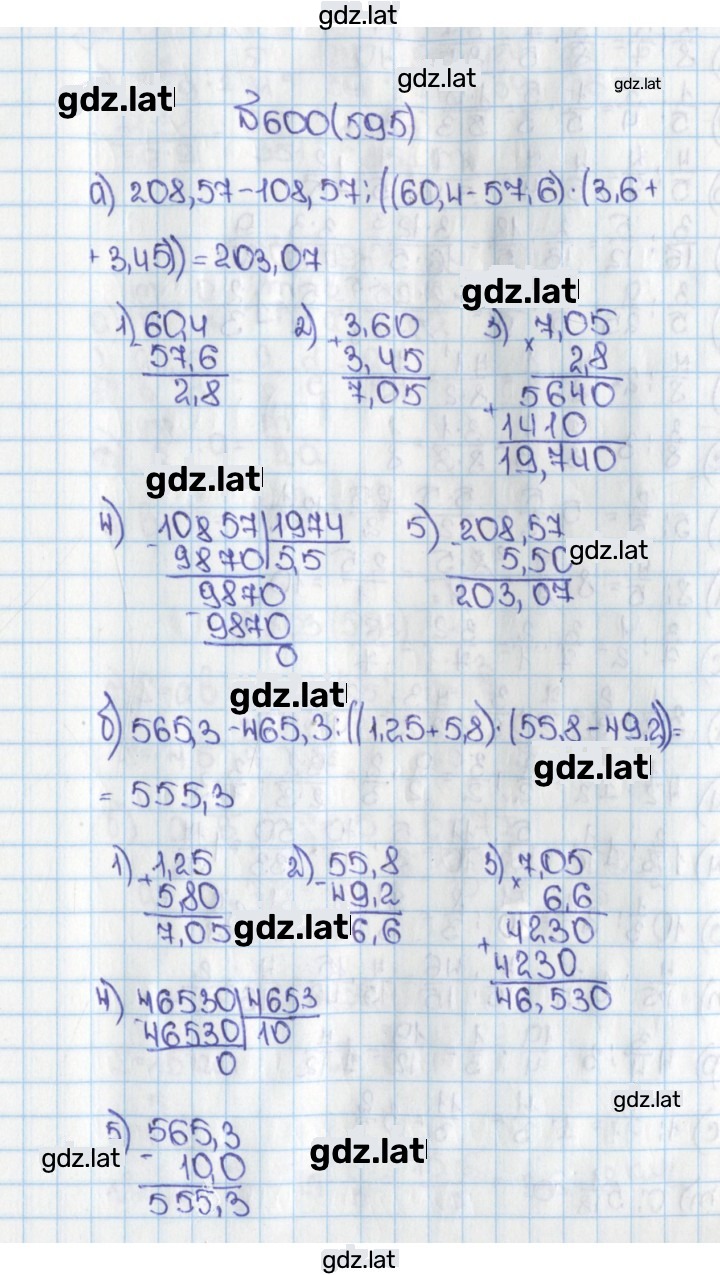 gdz.lat
gdz.lat gdz.lat gdz.lat
№600(595)
а) 208,57-108,57:((60,4-57,6)·(3,6+
+3,45))=203,07
gdz.lat
1) 60,4 2) 3,60 3) 7,05
- 57,6 + 3,45 × 2,8
2,8 7,05 5640
+ 1410
19,740
gdz.lat
4) 10857|1974 5) 208,57
- 9870|5,5 - 5,50 gdz.lat
9870 203,07
- 9870
0
gdz.lat
б) 565,3-465,3:((1,25+5,8)·(55,8-49,2))=
gdz.lat
= 555,3
1) 1,25 2) 55,8 3) 7,05
+ 5,80 - 49,2 × 6,6
7,05 gdz.lat 6,6 4230
+ 4230
46,530
4) 46530|4653
- 46530|10
0
gdz.lat
5) 565,3
gdz.lat - 10,0 gdz.lat
555,3
gdz.lat